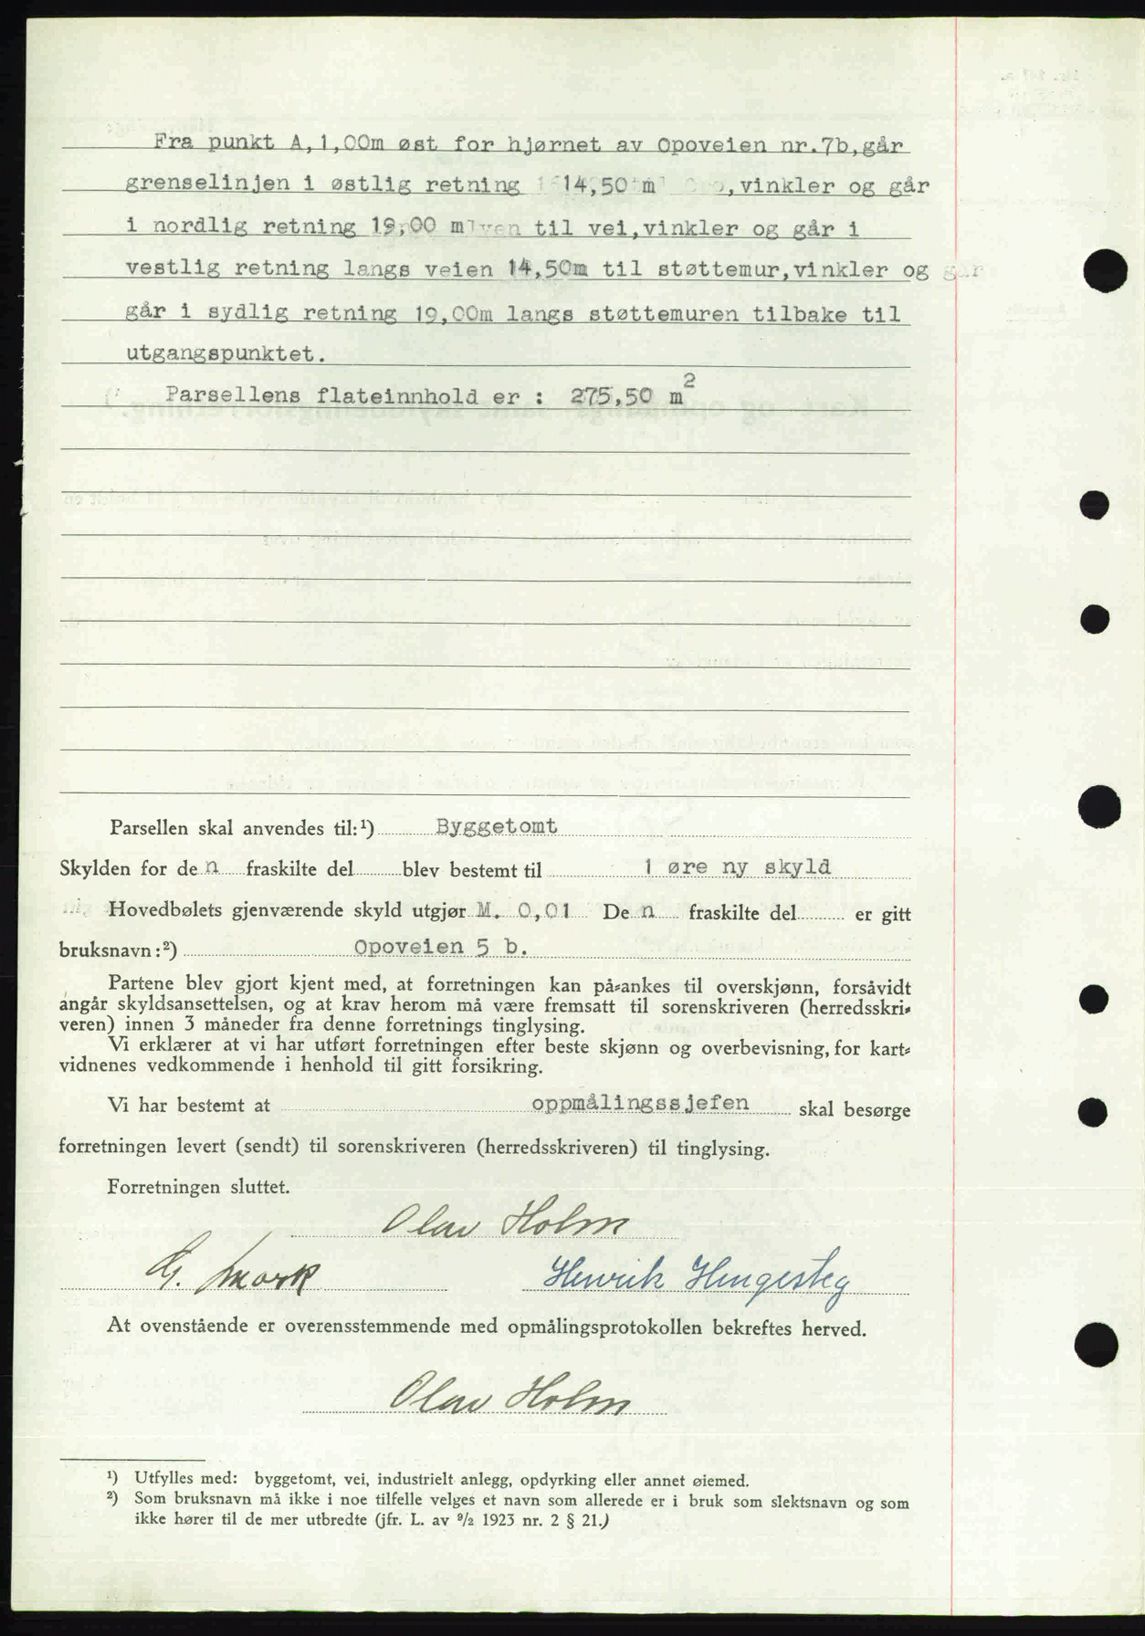 Fra punkt A,1,00m øst for hjørnet av Opoveien nr.7b,går
grenselinjen i østlig retning 14,50 m ,vinkler og går
i nordlig retning 19,00 m til vei,vinkler og går i
vestlig retning langs veien 14,50m til støttemur,vinkler og går
går i sydlig retning 19,00m langs støttemuren tilbake til
utgangspunktet.
Parsellens flateinnhold er : 275,50 m²
Parsellen skal anvendes til:¹) Byggetomt
Skylden for de n fraskilte del blev bestemt til 1 øre ny skyld
Hovedbølets gjenværende skyld utgjør M. 0,01 De n fraskilte del er gitt
bruksnavn:²) Opoveien 5 b.
Partene blev gjort kjent med, at forretningen kan på-ankes til overskjønn, forsåvidt
angår skyldsansettelsen, og at krav herom må være fremsatt til sorenskriveren (herredsskri-
veren) innen 3 måneder fra denne forretnings tinglysing.
Vi erklærer at vi har utført forretningen efter beste skjønn og overbevisning, for kart-
vidnenes vedkommende i henhold til gitt forsikring.
Vi har bestemt at oppmålingssjefen skal besørge
forretningen levert (sendt) til sorenskriveren (herredsskriveren) til tinglysing.
Forretningen sluttet.
Olav Holm
G. Mørk Henrik Hengesteg
At ovenstående er overensstemmende med opmålingsprotokollen bekreftes herved.
Olav Holm
¹) Utfylles med: byggetomt, vei, industrielt anlegg, opdyrking eller annet øiemed.
²) Som bruksnavn må ikke i noe tilfelle velges et navn som allerede er i bruk som slektsnavn og som
ikke hører til de mer utbredte (jfr. L. av ⁹/₂ 1923 nr. 2 § 21.)